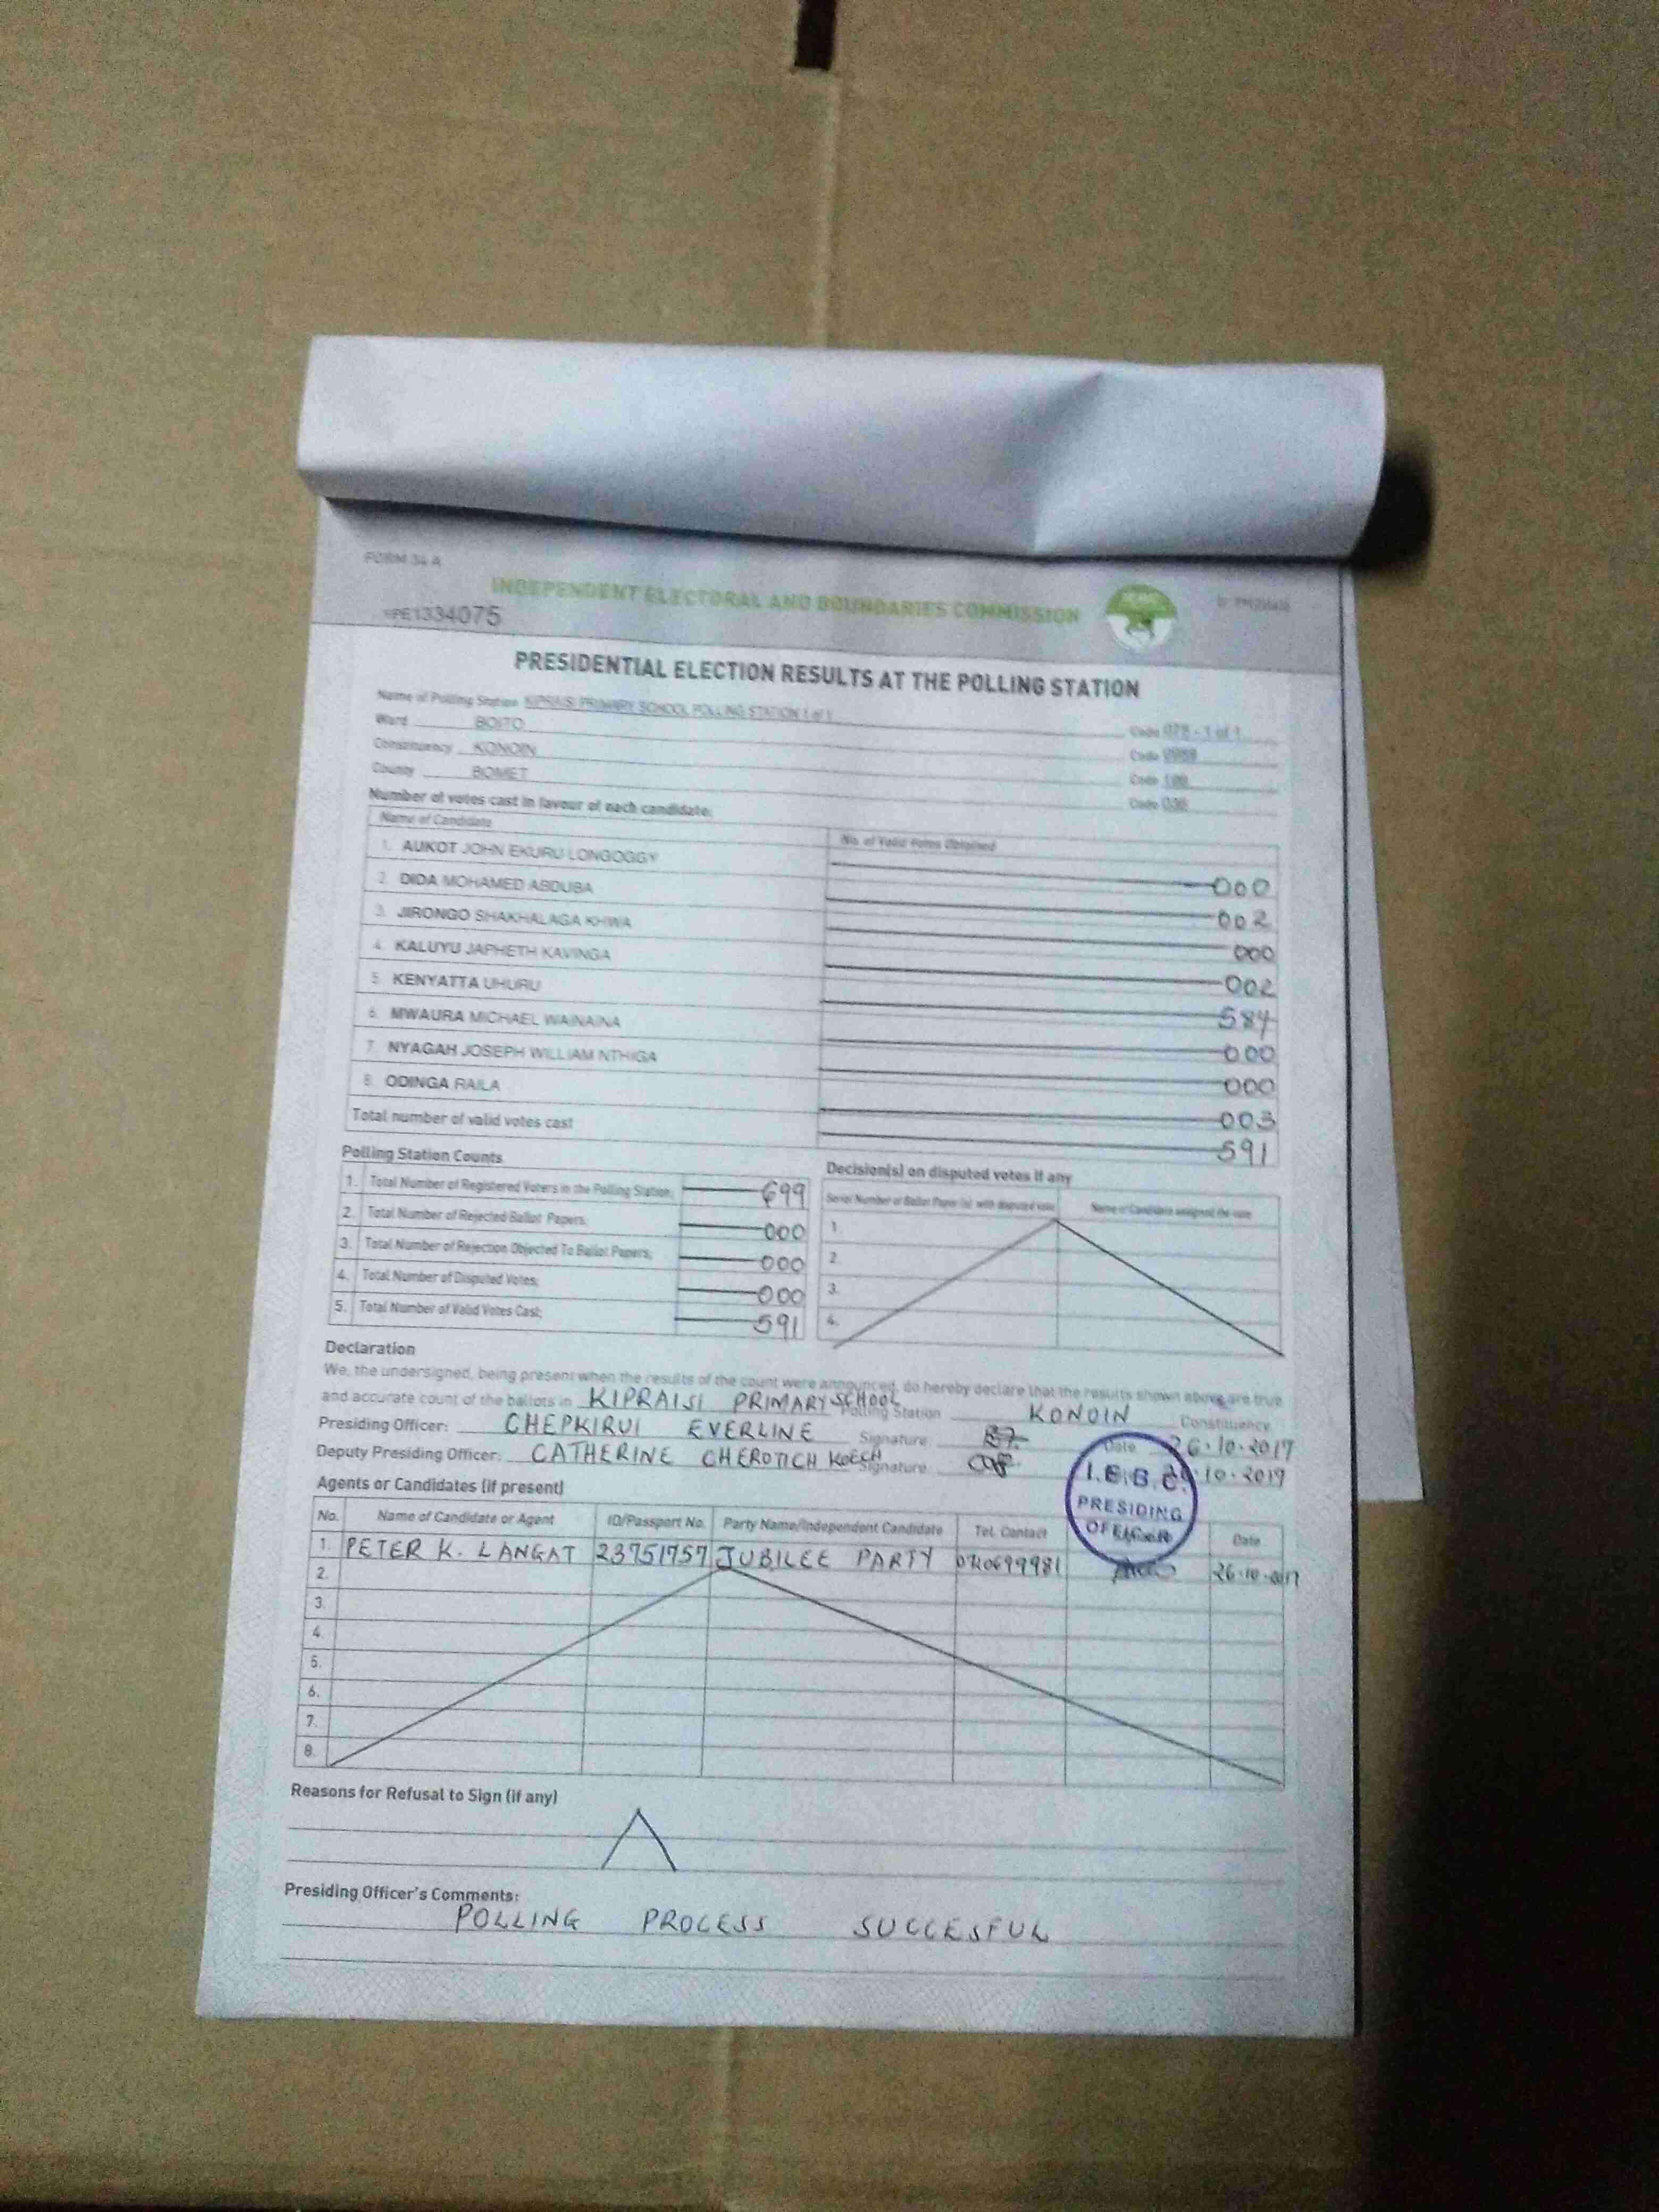 FORM 34 A
INDEPENDENT ELECTORAL AND BOUNDARIES COMMISSION
PE1334075
PRESIDENTIAL ELECTION RESULTS AT THE POLLING STATION
Name of Polling Station KIPRAISI PRIMARY SCHOOL POLLING STATION 1 of 1 Code 078 - 1 of 1
Ward BOITO Code
Constituency KONOIN Code
County BOMET Code
Number of votes cast in favour of each candidate:
Name of Candidate No. of Valid Votes Obtained
1. AUKOT JOHN EKURU LONGOGGY 000
2. DIDA MOHAMED ABDUBA 002
3. JIRONGO SHAKHALAGA KHWA 000
4. KALUYU JAPHETH KAVINGA 002
5. KENYATTA UHURU 584
6. MWAURA MICHAEL WAINAINA 000
7. NYAGAH JOSEPH WILLIAM NTHIGA 000
8. ODINGA RAILA 003
Total number of valid votes cast 591
Polling Station Counts
1. Total Number of Registered Voters in the Polling Station; 699
2. Total Number of Rejected Ballot Papers; 000
3. Total Number of Rejection Objected To Ballot Papers; 000
4. Total Number of Disputed Votes; 000
5. Total Number of Valid Votes Cast; 591
Decision(s) on disputed votes if any
Serial Number of Ballot Paper (s) with disputed vote Name of Candidate assigned the vote
1.
2.
3.
4.
Declaration
We, the undersigned, being present when the results of the count were announced, do hereby declare that the results shown above are true
and accurate count of the ballots in KIPRAISI PRIMARY SCHOOL Polling Station KONOIN Constituency
Presiding Officer: CHEPKIRUI EVERLINE Signature Date 26.10.2017
Deputy Presiding Officer: CATHERINE CHEROTICH KOECH Signature 10.2017
I.E.B.C.
PRESIDING
OFFICER
Agents or Candidates (if present)
No. Name of Candidate or Agent ID/Passport No. Party Name/Independent Candidate Tel. Contact Date
1. PETER K. LANGAT 23751757 JUBILEE PARTY 26.10.2017
2.
3.
4.
5.
6.
7.
8.
Reasons for Refusal to Sign (if any)
Presiding Officer's Comments:
POLLING PROCESS SUCCESFUL